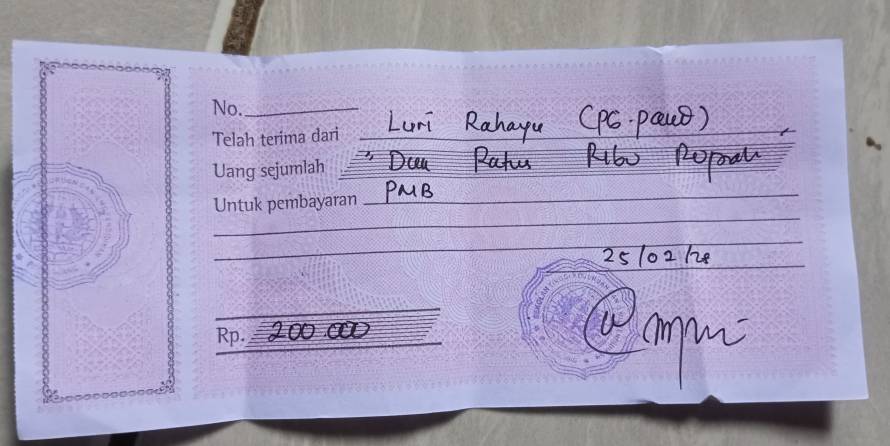 No.
Telah terima dari Luri Rahayu (PG-paud)
Uang sejumlah " Dua Ratus Ribu Rupiah "
Untuk pembayaran PMB
25/02/
Rp. 200.000